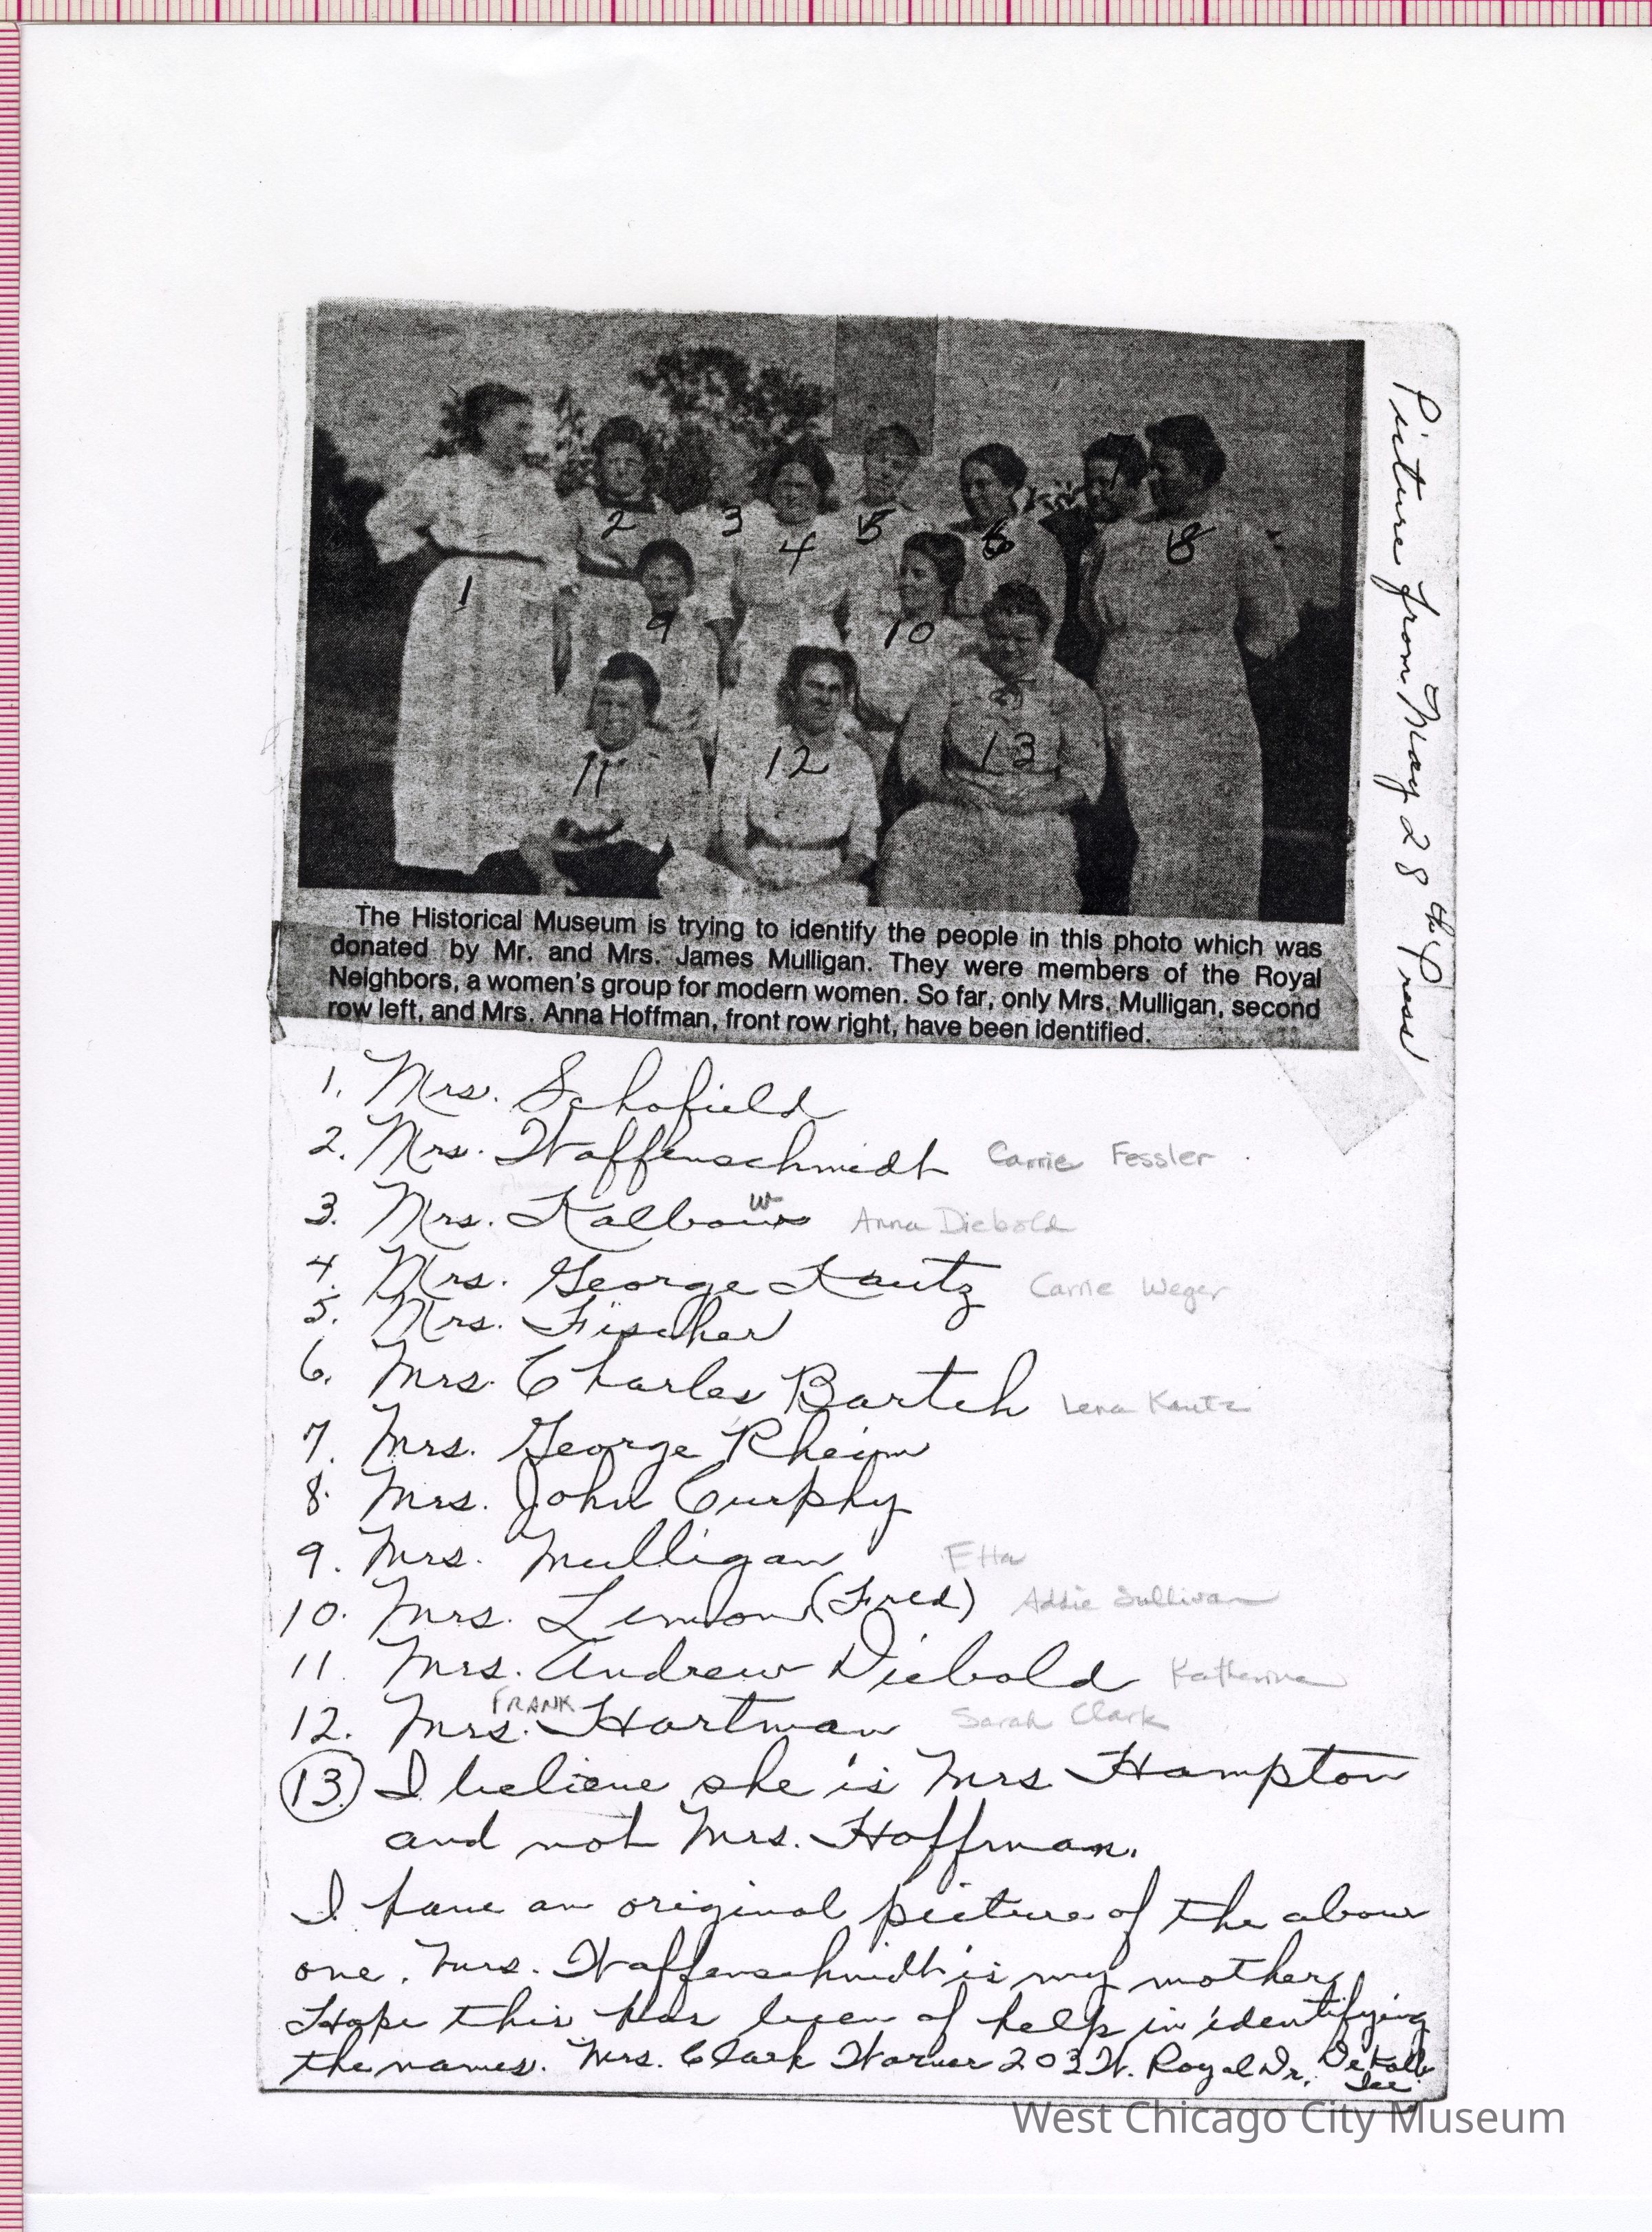 1
2
3
4
5
6
7
8
9
10
11
12
13
Picture from May 28th Press
The Historical Museum is trying to identify the people in this photo which was
donated by Mr. and Mrs. James Mulligan. They were members of the Royal
Neighbors, a women's group for modern women. So far, only Mrs. Mulligan, second
row left, and Mrs. Anna Hoffman, front row right, have been identified.
1. Mrs. Schofield
2. Mrs. Waffenschmidt Carrie Fessler
3. Mrs. Kalbow Anna Diebold
4. Mrs. George Kautz Carrie Weger
5. Mrs. Fischer
6. Mrs. Charles Bartch Lena Kautz
7. Mrs. George Rheim
8. Mrs. John Curphy
9. Mrs. Mulligan Etta
10. Mrs. Lemon (Fred) Addie Sullivan
11. Mrs. Andrew Diebold Katherine
12. Mrs. FRANK Hartman Sarah Clark
13. I believe she is Mrs Hampton
and not Mrs. Hoffman.
I have an original picture of the above
one. Mrs. Waffenschmidt is my mother.
Hope this has been of help in identifying
the names. Mrs. Clark Warner 203 W. Royal Dr. DeKalb
Ill.
West Chicago City Museum